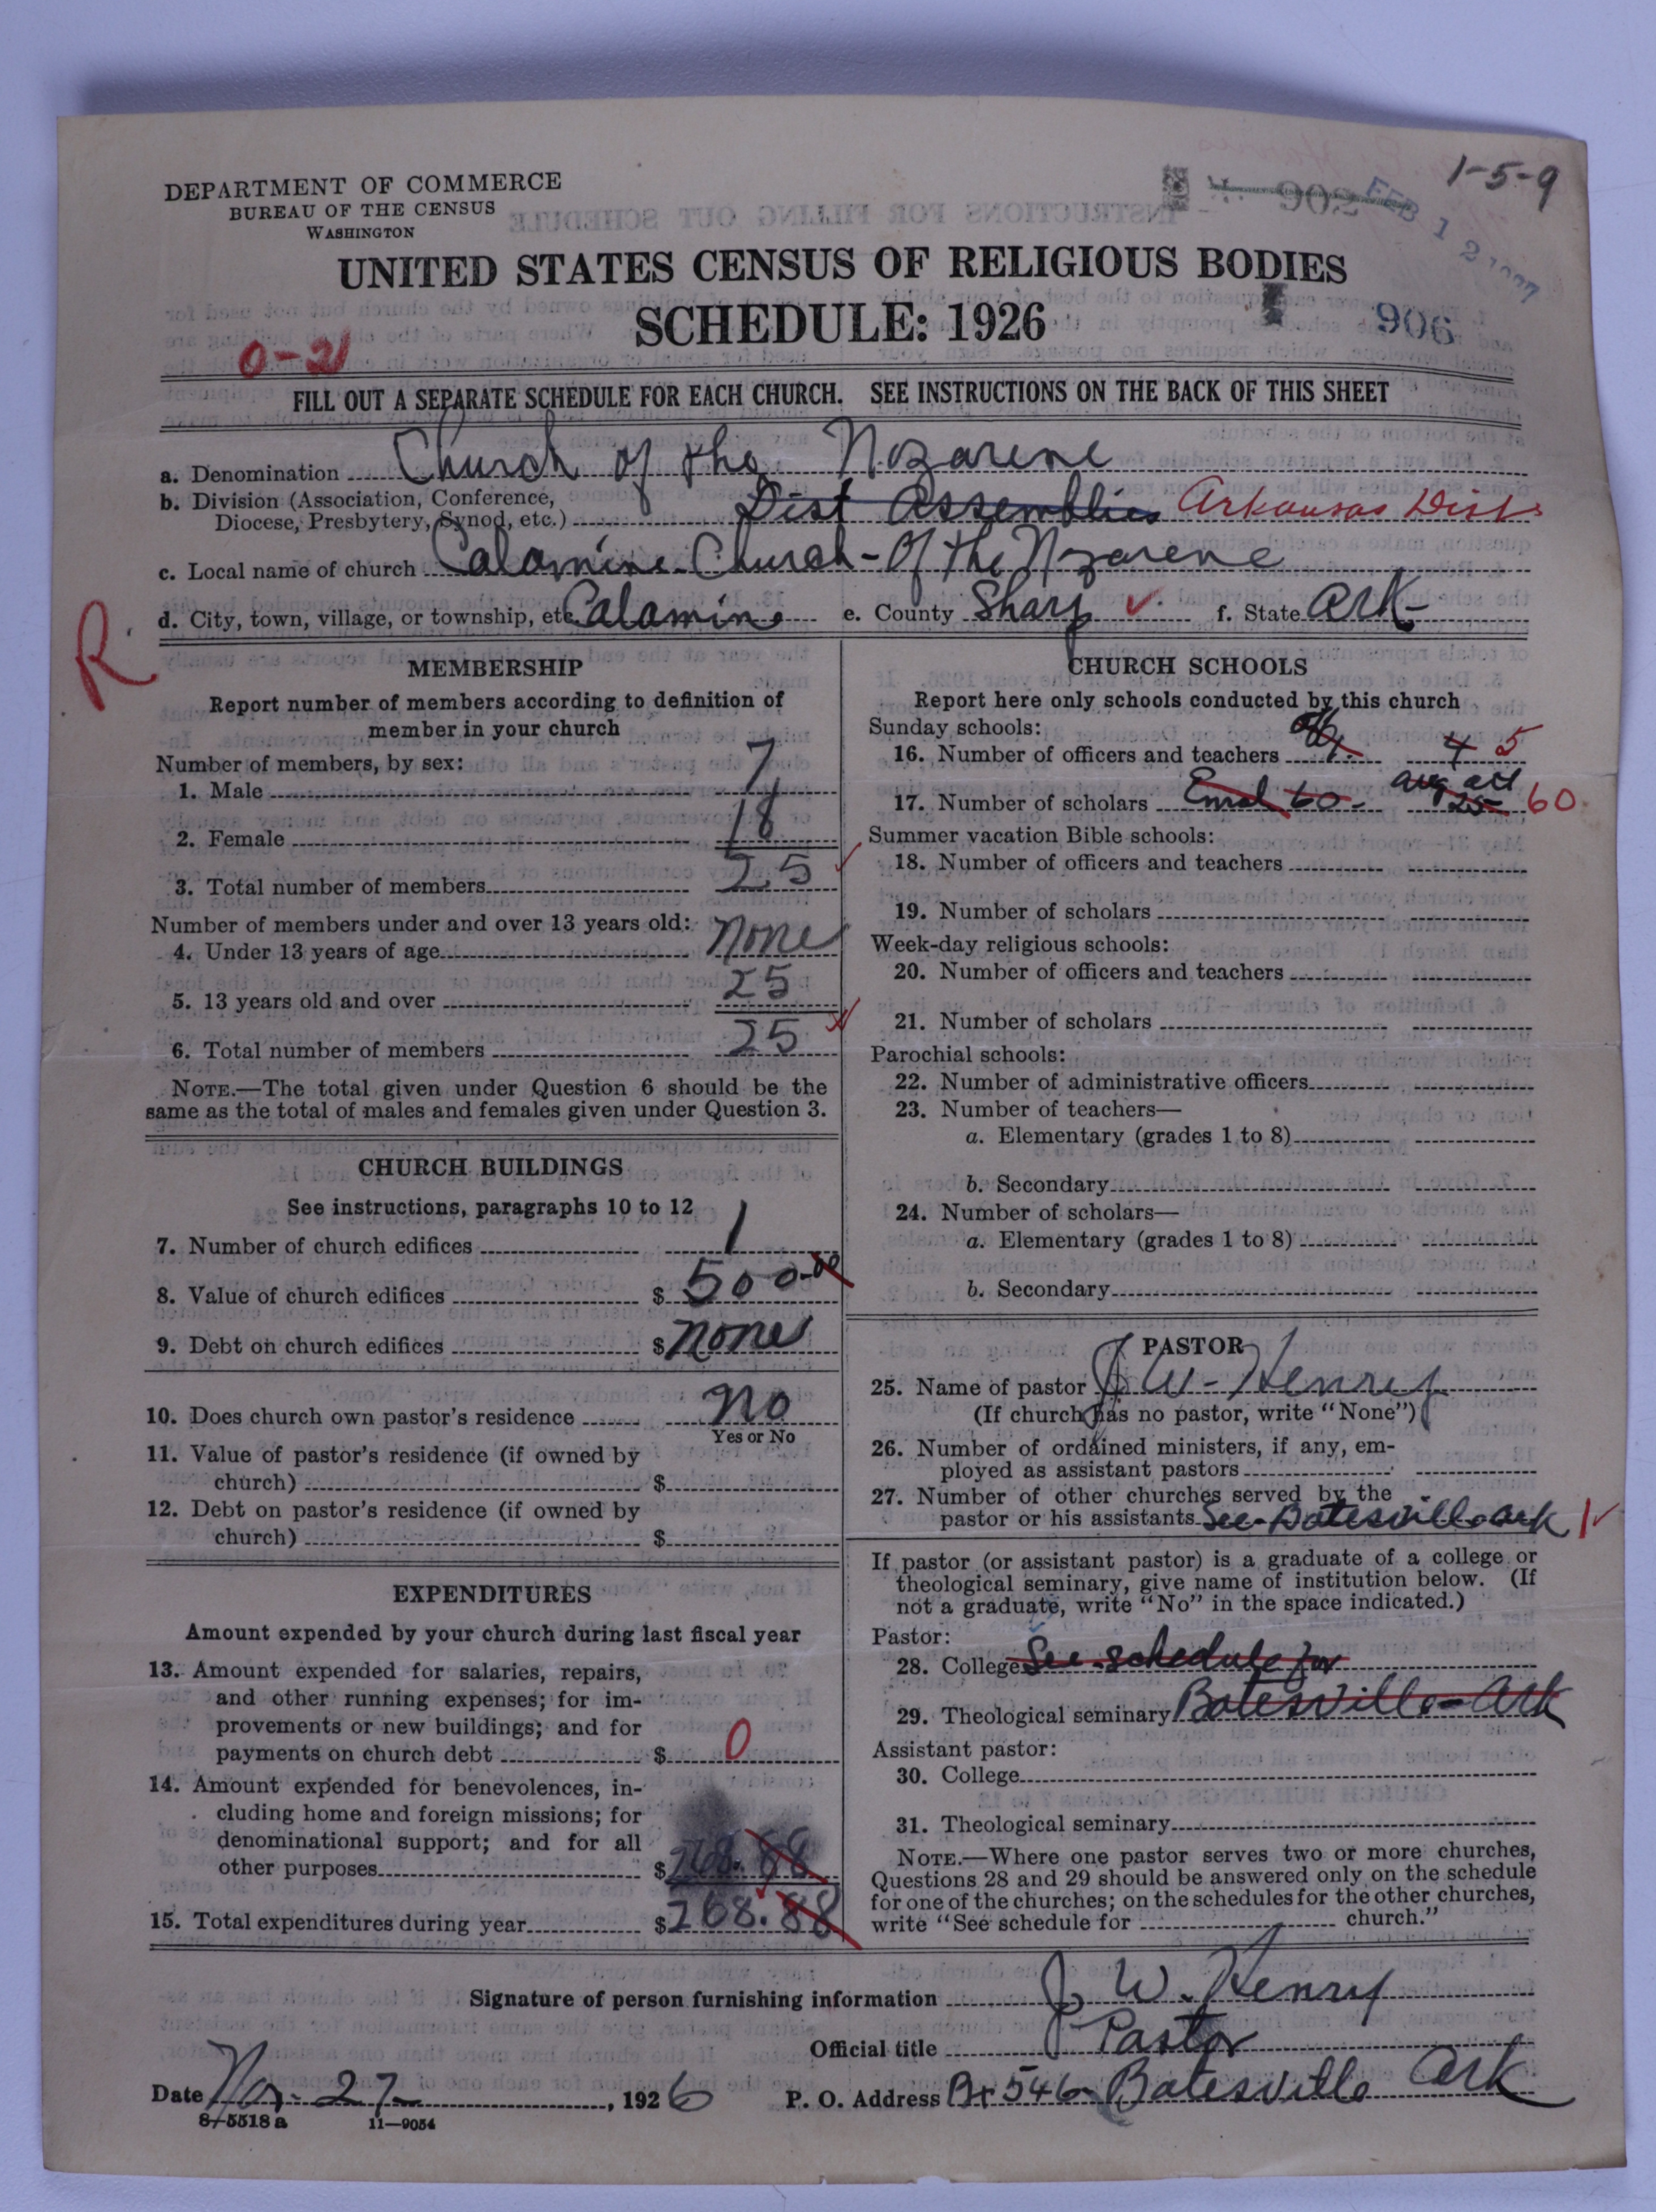 1-5-9
DEPARTMENT OF COMMERCE
BUREAU OF THE CENSUS
WASHINGTON
902
FEB 12 1927
UNITED STATES CENSUS OF RELIGIOUS BODIES
SCHEDULE: 1926
906
0-21
FILL OUT A SEPARATE SCHEDULE FOR EACH CHURCH. SEE INSTRUCTIONS ON THE BACK OF THIS SHEET
a. Denomination Church of the Nazarene
b. Division (Association, Conference,
Diocese, Presbytery, Synod, etc.) Dist Assemblies Arkansas Dist
c. Local name of church Calamine Church-Of the Nzarene
d. City, town, village, or township, etc. Calamine e. County Sharp ✓ f. State Ark-
R
MEMBERSHIP
Report number of members according to definition of
member in your church
Number of members, by sex:
1. Male 7
2. Female 18
3. Total number of members 25 ✓
Number of members under and over 13 years old:
4. Under 13 years of age None
5. 13 years old and over 25
6. Total number of members 25
NOTE.—The total given under Question 6 should be the
same as the total of males and females given under Question 3.
CHURCH BUILDINGS
See instructions, paragraphs 10 to 12
7. Number of church edifices 1
8. Value of church edifices $ 500.00
9. Debt on church edifices $ None
10. Does church own pastor's residence No
Yes or No
11. Value of pastor's residence (if owned by
church) $
12. Debt on pastor's residence (if owned by
church) $
EXPENDITURES
Amount expended by your church during last fiscal year
13. Amount expended for salaries, repairs,
and other running expenses; for im-
provements or new buildings; and for
payments on church debt $ 0
14. Amount expended for benevolences, in-
cluding home and foreign missions; for
denominational support; and for all
other purposes $ 268.88
15. Total expenditures during year $ 268.88
CHURCH SCHOOLS
Report here only schools conducted by this church
Sunday schools:
16. Number of officers and teachers 4 5
17. Number of scholars Enrol 60- avg att 25 60
Summer vacation Bible schools:
18. Number of officers and teachers
19. Number of scholars
Week-day religious schools:
20. Number of officers and teachers
21. Number of scholars
Parochial schools:
22. Number of administrative officers
23. Number of teachers—
a. Elementary (grades 1 to 8)
b. Secondary
24. Number of scholars—
a. Elementary (grades 1 to 8)
b. Secondary
PASTOR
25. Name of pastor J W- Henry
(If church has no pastor, write "None")
26. Number of ordained ministers, if any, em-
ployed as assistant pastors
27. Number of other churches served by the
pastor or his assistants See-Batesville Ark 1 ✓
If pastor (or assistant pastor) is a graduate of a college or
theological seminary, give name of institution below. (If
not a graduate, write "No" in the space indicated.)
Pastor:
28. College See schedule for
29. Theological seminary Batesville-Ark
Assistant pastor:
30. College
31. Theological seminary
NOTE.—Where one pastor serves two or more churches,
Questions 28 and 29 should be answered only on the schedule
for one of the churches; on the schedules for the other churches,
write "See schedule for church."
Signature of person furnishing information J. W. Henry
Official title Pastor
Date 27- , 1926 P. O. Address Bx 546- Batesville Ark
8-5518 a 11—9054